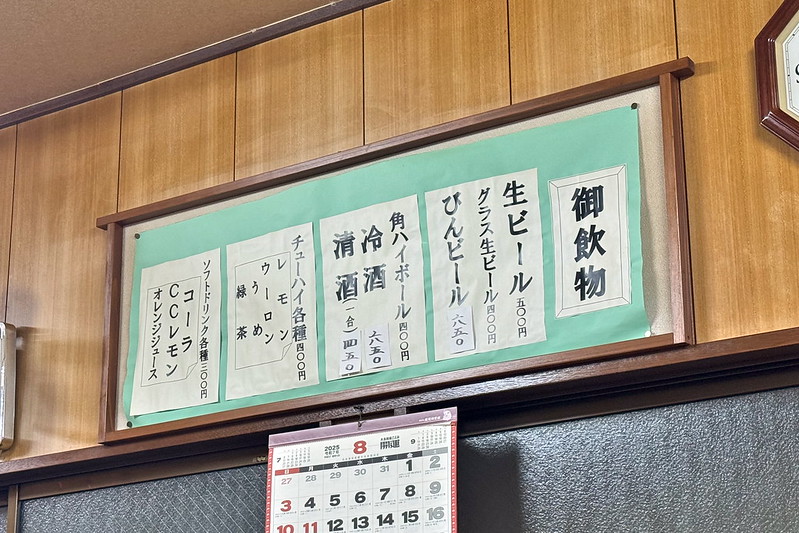 御飲物
生ビール 五〇〇円
グラス生ビール 四〇〇円
びんビール 六五〇
角ハイボール 四〇〇円
冷酒 六五〇
清酒(一合) 四五〇
チューハイ各種 四〇〇円
レモン
ウーロン
うめ
緑茶
ソフトドリンク各種 三〇〇円
コーラ
CCレモン
オレンジジュース
7 2025 8 開運 9
日 月 火 水 木 金 土
27 28 29 30 31 1 2
3 4 5 6 7 8 9
10 11 12 13 14 15 16